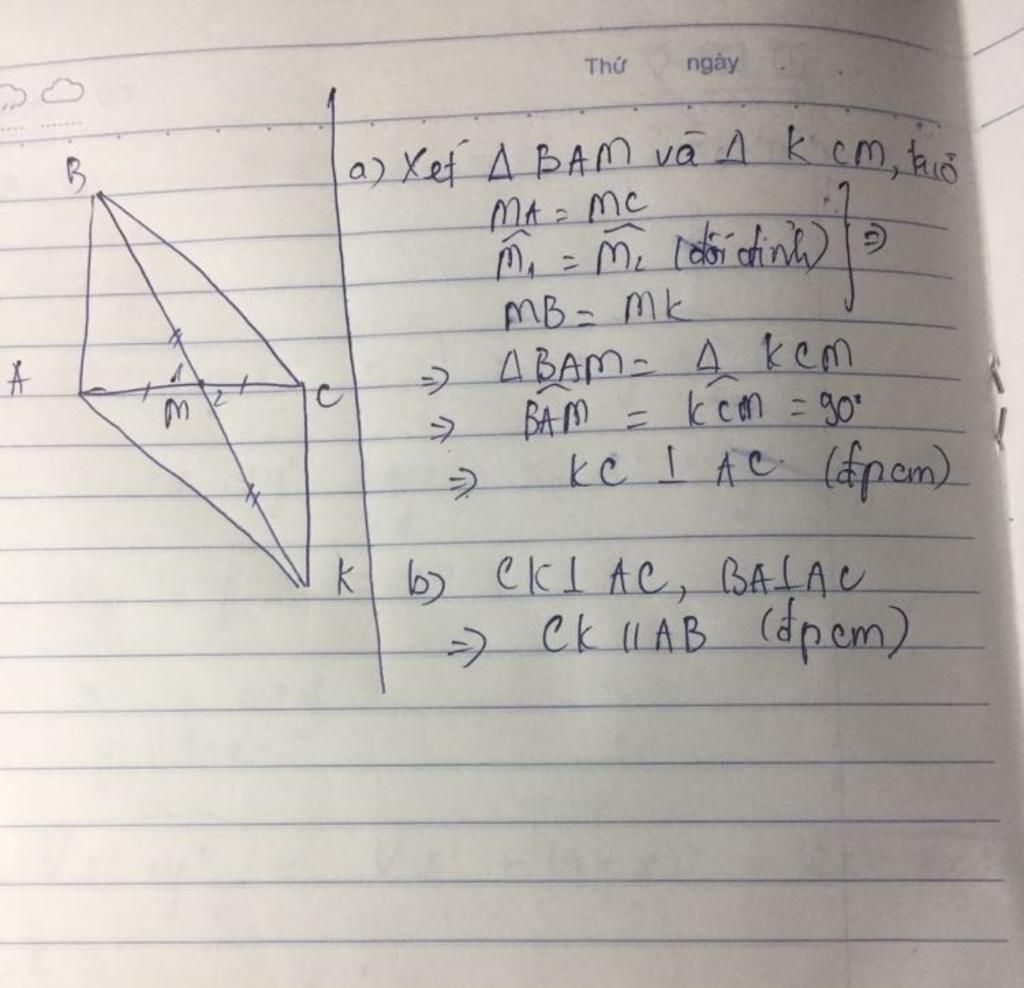 Thứ ngày
B
A
M
1
2
C
K
a) Xét Δ BAM và Δ KCM, ta có
MA = MC
M̂₁ = M̂₂ (đối đỉnh) } ⇒
MB = MK
⇒ Δ BAM = Δ KCM
⇒ BAM̂ = KCM̂ = 90°
⇒ KC ⊥ AC (đpcm)
b) CK ⊥ AC, BA ⊥ AC
⇒ CK // AB (đpcm)